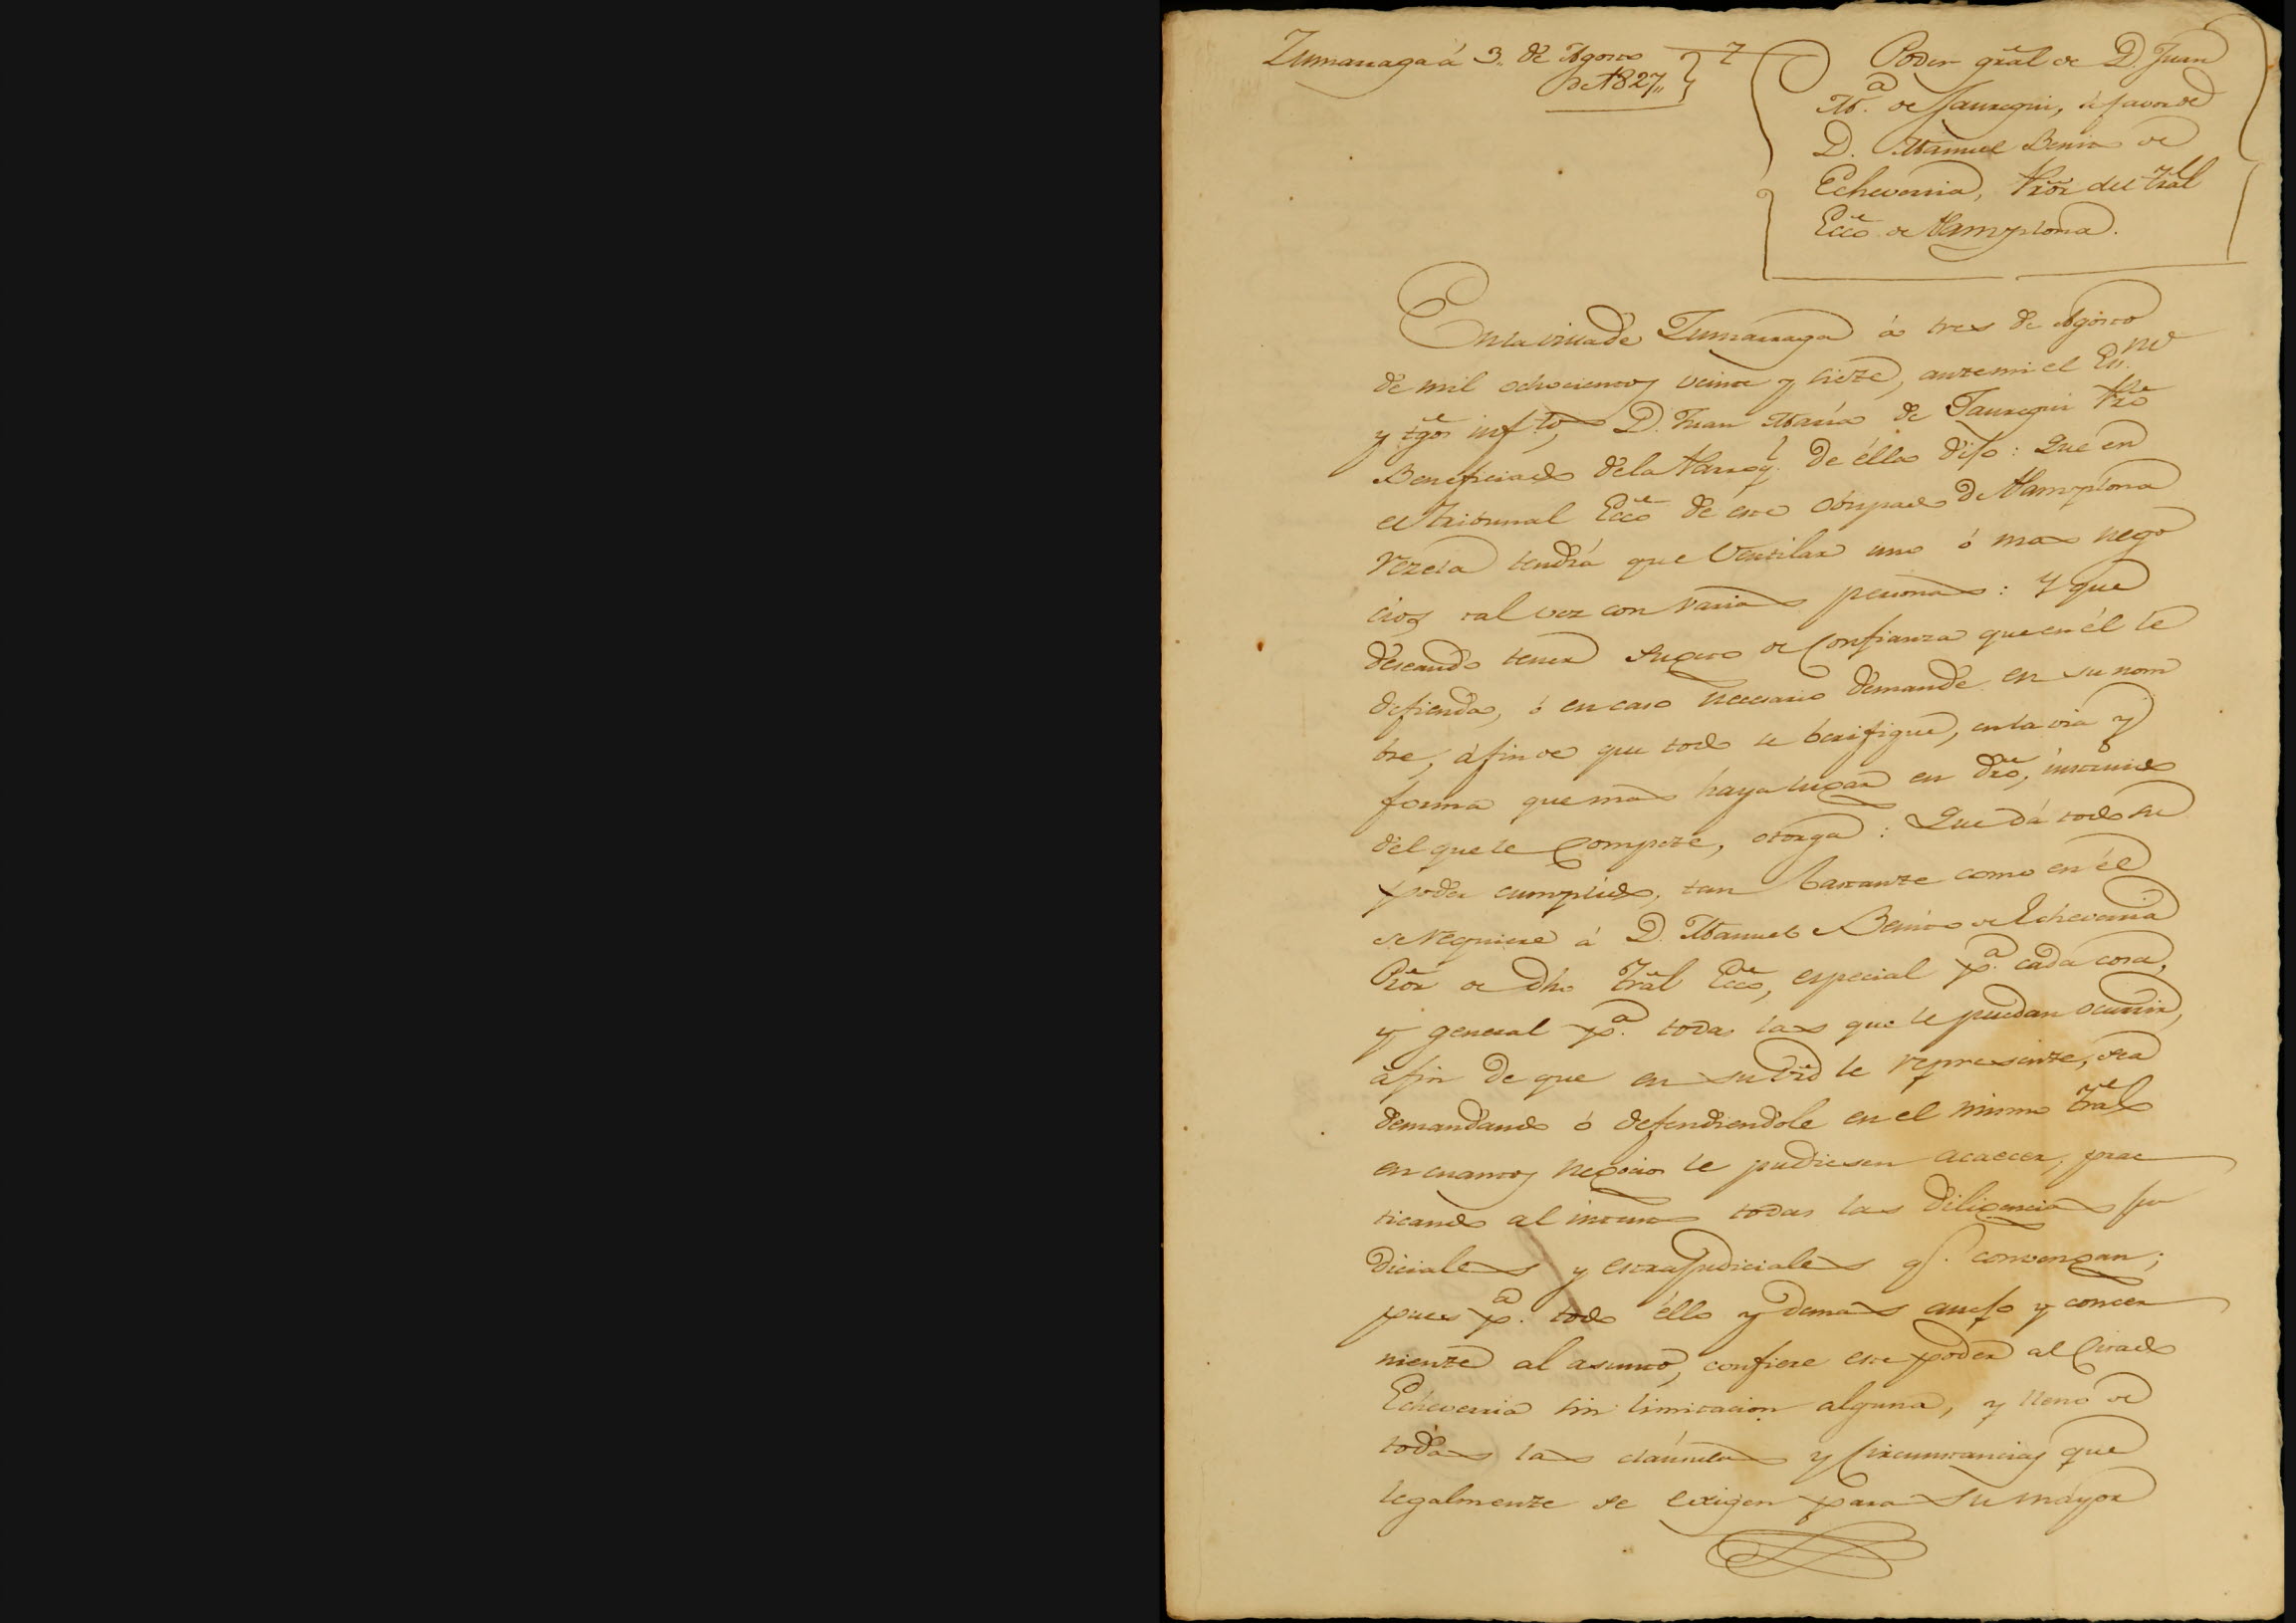 Zumarraga á 3,, de Agosto
de 1827,,
Poder gral de D. Juan
M.ª de Jauregui, á favor de
D. Manuel Benito de
Echeverria, Pror del Tral
Ecco de Pamplona.
En la villa de Zumarraga á tres de Agosto
de mil ochocientos veinte y siete, ante mi el Es.no
y tgos inf.tos, D. Juan María de Jauregui Pro
Beneficiado de la Parroq.l de élla dijo: Que en
el Tribunal Ecco de este Obispado de Pamplona
rezela tendrá que Ventilar uno ó mas nego
cios tal vez con varias personas: Y que
deseando tener sugeto de Confianza que en él le
defienda, ó en caso necesario demande en su nom
bre, á fin de que todo se berifique, en la via y
forma que mas haya lugar en dro, instruido
del que le Compete, otorga: Que dá todo su
poder cumplido, tan bastante como en él
se requiere á D. Manuel Benito de Echeverria
Pror de dho Tral Ecco, especial p.ª cada cosa,
y general p.ª todas las que le puedan ocurrir,
á fin de que en su dro le represente, sea
demandando ó defendiendole en el mismo Tral
en cuantos negocios le pudiesen acaecer; prac
ticando al intento todas las diligencias ju
diciales y extrajudiciales q.e convengan;
pues p.ª todo éllo y demas anejo y concer
niente al asunto, confiere este poder al Citado
Echeverria sin limitacion alguna, y lleno de
todas las cláusulas y Circunstancias que
legalmente se exigen para su mayor